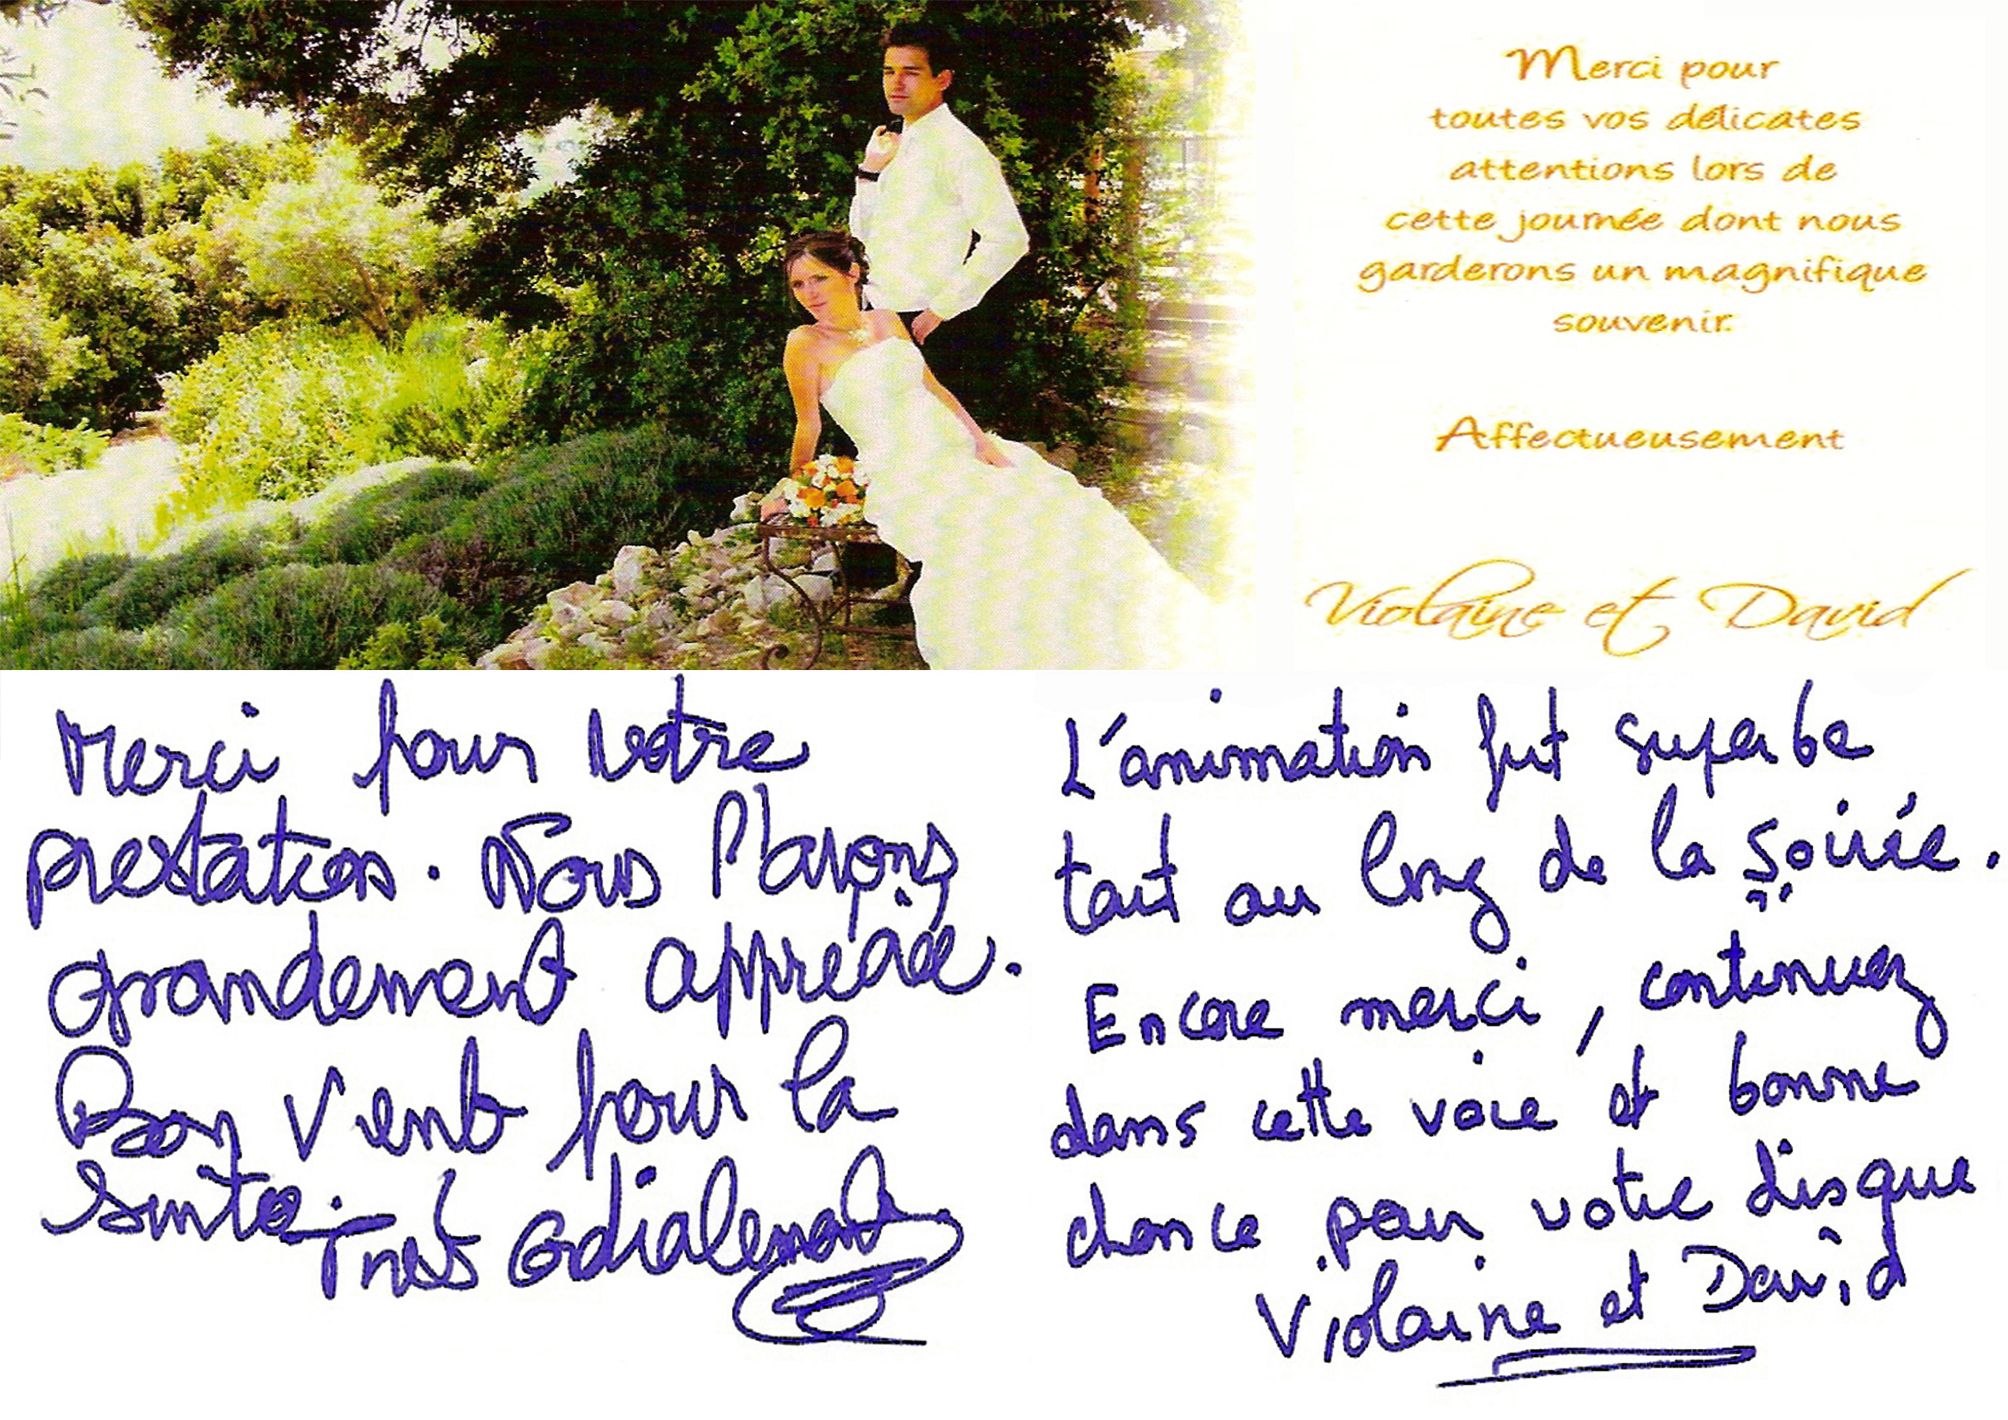 Merci pour
toutes vos délicates
attentions lors de
cette journée dont nous
garderons un magnifique
souvenir.
Affectueusement
Violaine et David
Merci pour votre
prestation. Nous l'avons
grandement appréciée.
Bon vent pour la
suite.
Très cordialement.
L'animation fut superbe
tout au long de la soirée.
Encore merci, continuez
dans cette voie et bonne
chance pour votre disque
Violaine et David